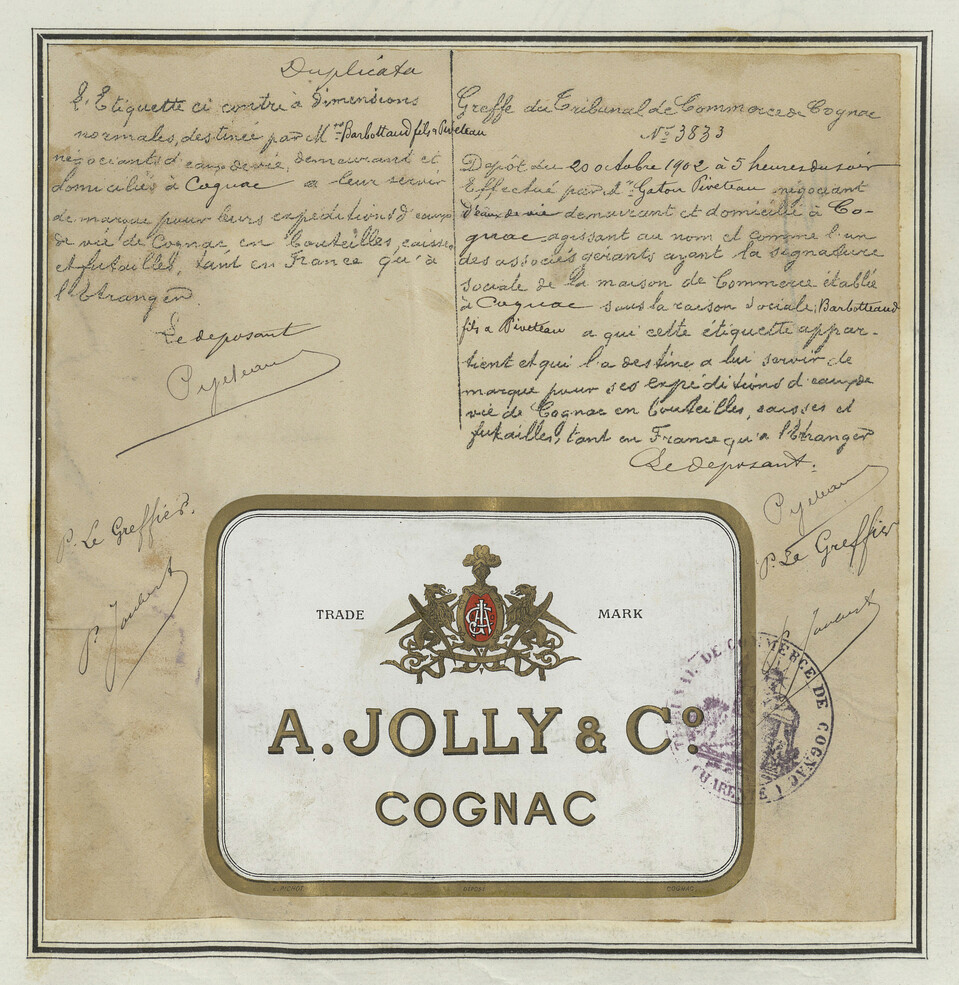 Duplicata
L'Etiquette ci contre à dimensions
normales, destinée par M.rs Barbottaud fils & Piveteau
négociants d'eaux de vie, demeurant et
domiciliés à Cognac à leur servir
de marque pour leurs expéditions d'eaux
de vie de Cognac en bouteilles, caisses
et futailles, tant en France qu'à
l'Etranger
Le deposant
Piveteau
P. Le Greffier.
P. Joubert
Greffe du Tribunal de Commerce de Cognac
No 3833
Depôt du 20 octobre 1902 à 5 heures du soir
Effectué par M.r Gaton Piveteau négociant
d'eaux de vie demeurant et domicilié à Co-
gnac, agissant au nom et comme l'un
des associés gérants ayant la signature
sociale de la maison de Commerce établie
à Cognac sous la raison sociale; Barbotteaud
fils & Piveteau a qui cette étiquette appar-
tient et qui l'a destine a lui servir de
marque pour ses expéditions d'eaux de
vie de Cognac en bouteilles, caisses et
futailles, tant en France qu'a l'Etranger
Le deposant.
Piveteau
P. Le Greffier
P. Joubert
TRADE MARK
A. JOLLY & Co.
COGNAC
TRIBUNAL DE COMMERCE DE COGNAC
(CHARENTE)
DÉPOSÉ
COGNAC